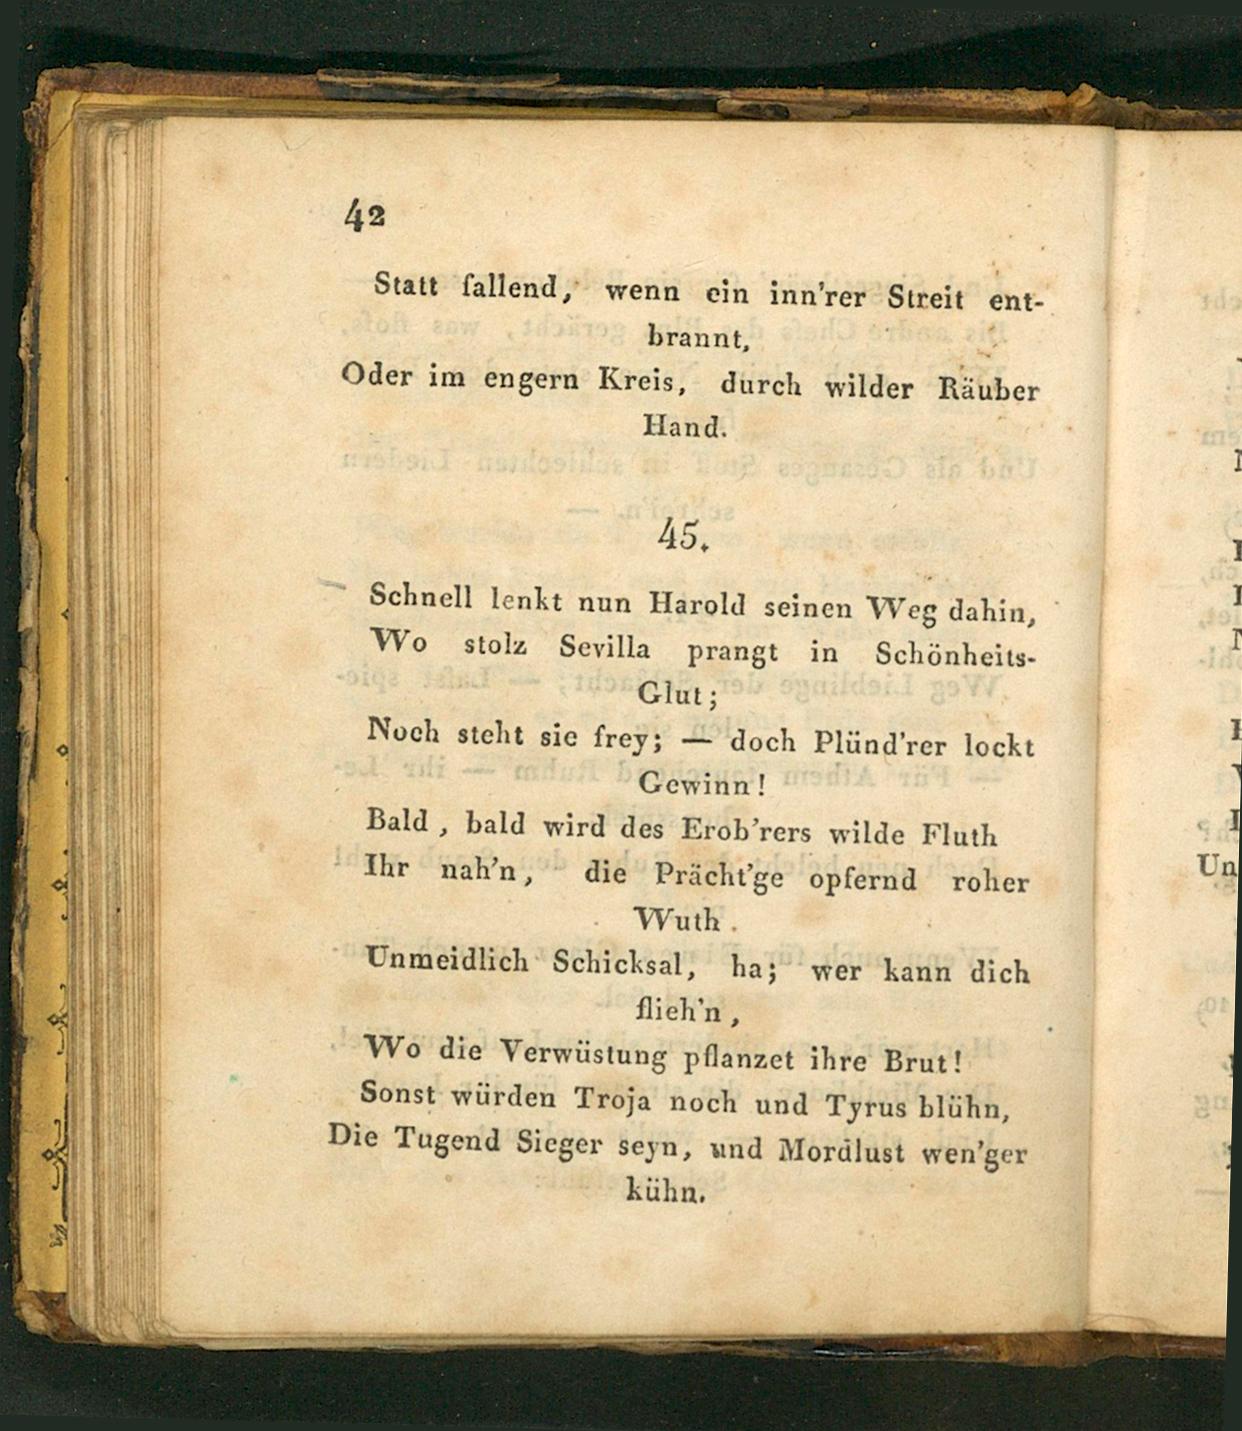 42
Statt fallend, wenn ein inn'rer Streit ent-
brannt,
Oder im engern Kreis, durch wilder Räuber
Hand.
45.
Schnell lenkt nun Harold seinen Weg dahin,
Wo stolz Sevilla prangt in Schönheits-
Glut;
Noch steht sie frey; — doch Plünd'rer lockt
Gewinn!
Bald, bald wird des Erob'rers wilde Fluth
Ihr nah'n, die Prächt'ge opfernd roher
Wuth.
Unmeidlich Schicksal, ha; wer kann dich
flieh'n,
Wo die Verwüstung pflanzet ihre Brut!
Sonst würden Troja noch und Tyrus blühn,
Die Tugend Sieger seyn, und Mordlust wen'ger
kühn.